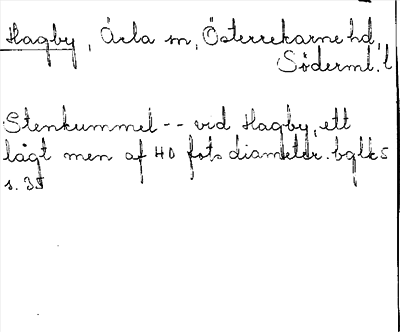 Hagby, Ärla sn, Österrekarne hd,
Söderml. l
Stenkummel -- vid Hagby, ett
lågt men af 40 fots diameter. bglks
s. 35